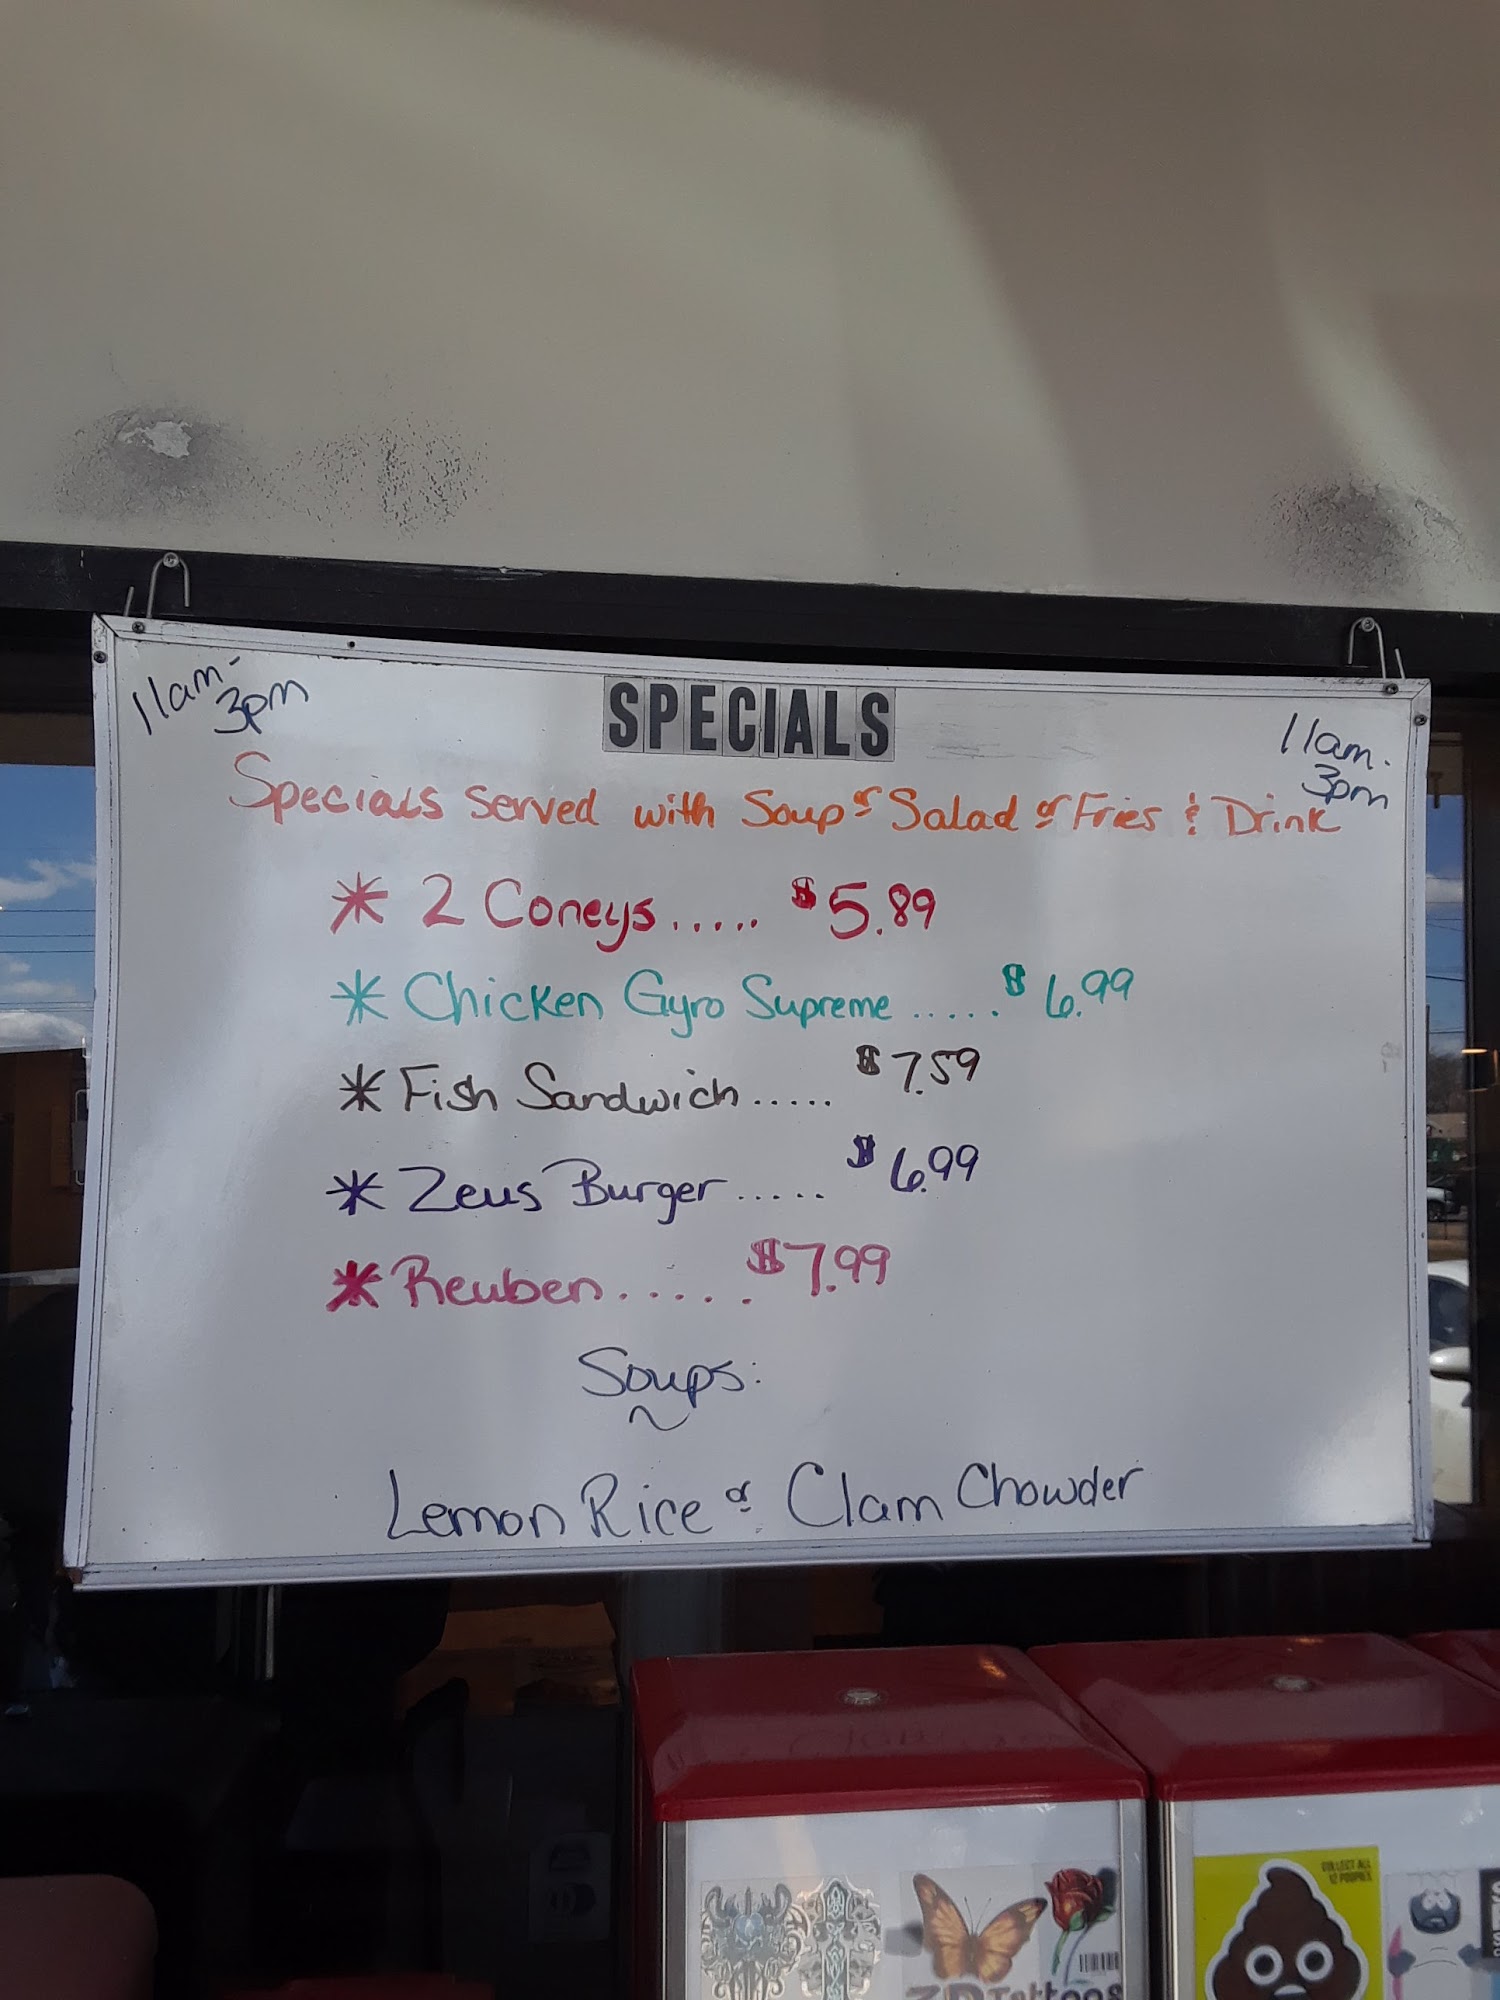 11am-
3pm
SPECIALS
11am-
3pm
Specials served with Soup or Salad or Fries & Drink
* 2 Coneys..... $5.89
* Chicken Gyro Supreme ..... $6.99
* Fish Sandwich ..... $7.59
* Zeus Burger ..... $6.99
* Reuben..... $7.99
Soups:
Lemon Rice or Clam Chowder
COLLECT ALL
12 POOPIES
3D Tattoos